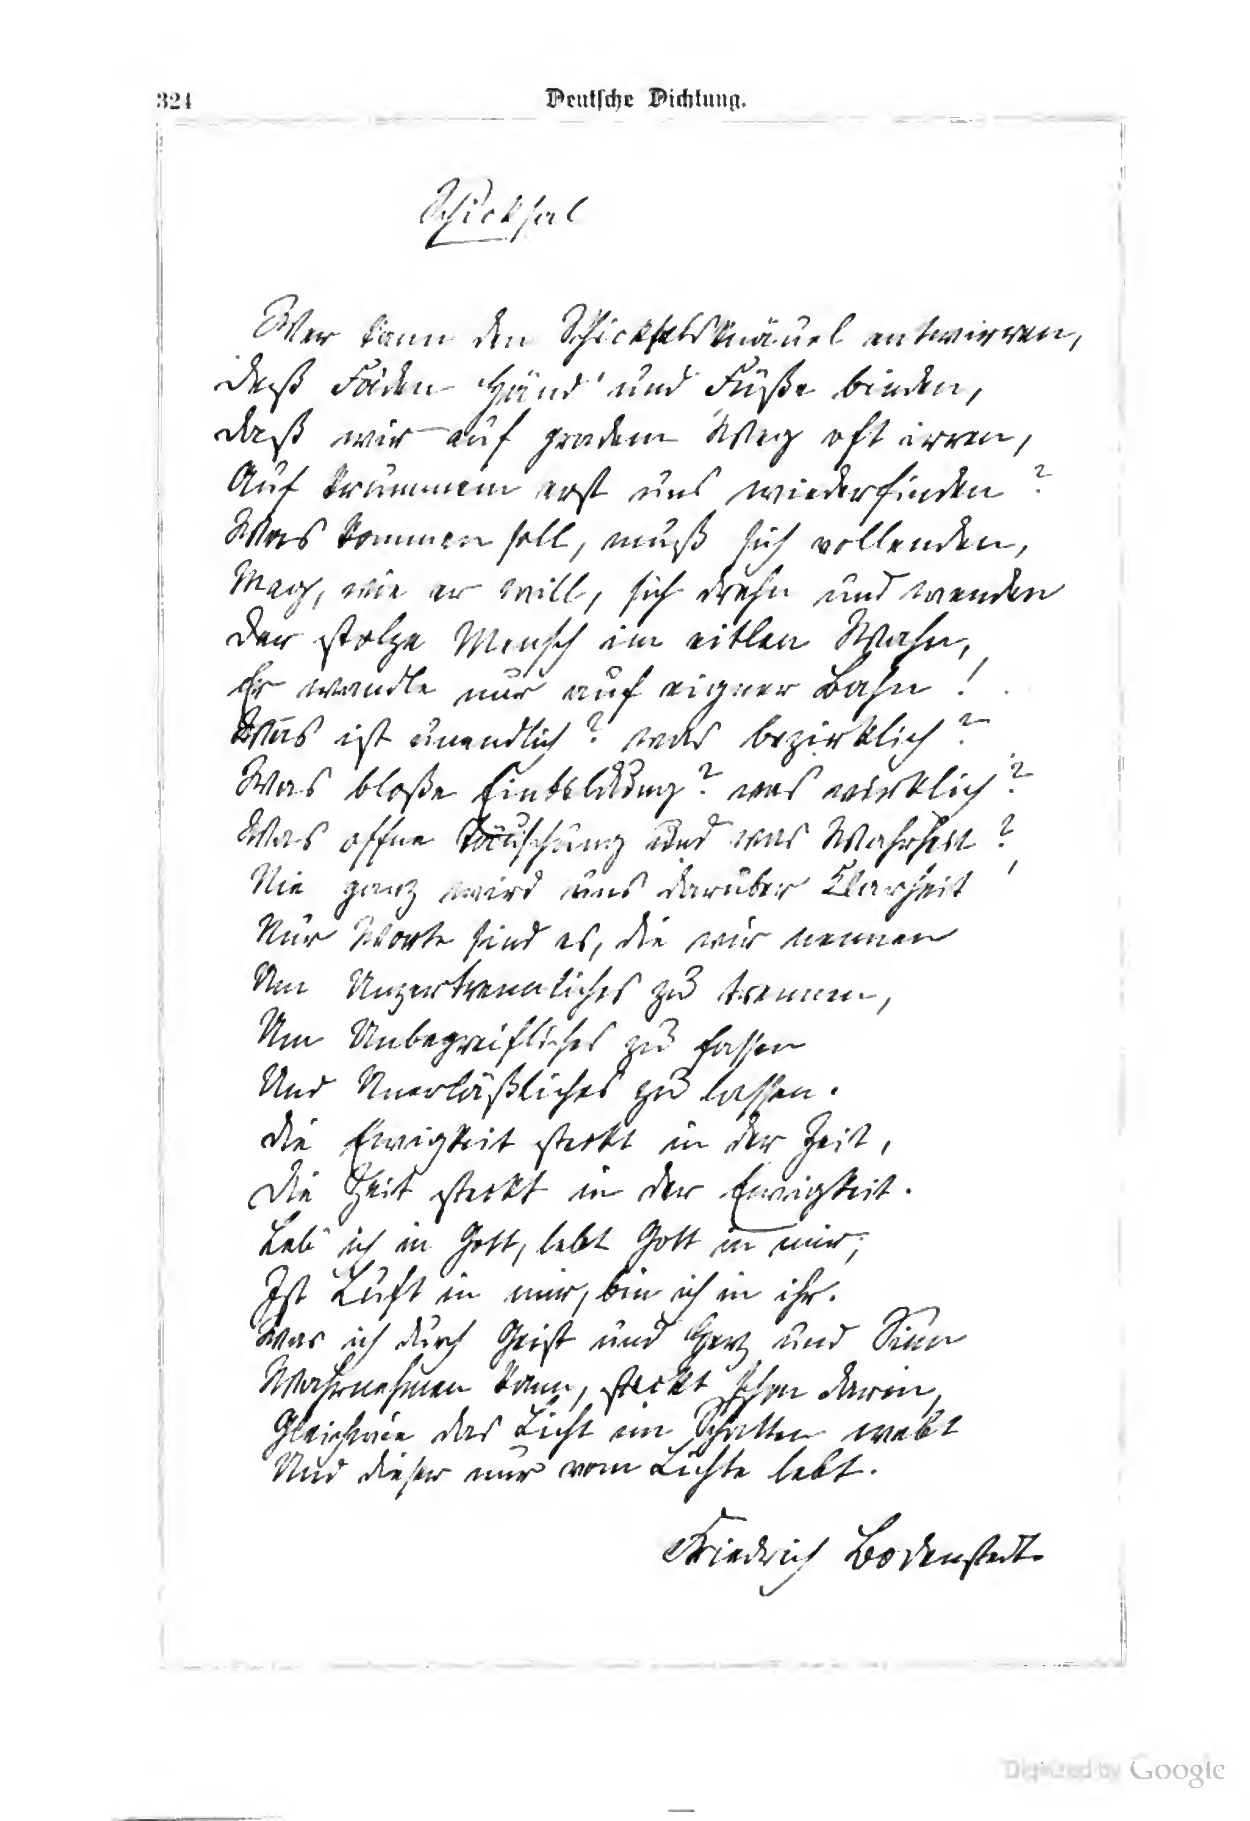 324
Deutsche Dichtung.
Schicksal
Wer kann den Schicksalsknäuel entwirren,
Deß Fäden Händ' und Füße binden,
Daß wir auf gradem Weg oft irren,
Auf krummem erst uns wiederfinden?
Was kommen soll, muß sich vollenden,
Mag, wie er will, sich drehn und wenden
Der stolze Mensch im eitlen Wahn,
Er wandle nur auf eigner Bahn!
Was ist unendlich? was bezirklich?
Was bloße Einbildung? was wirklich?
Was offne Täuschung und was Wahrheit?
Nie ganz wird uns darüber Klarheit!
Nur Worte sind es, die wir nennen
Um Unzertrennliches zu trennen,
Um Unbegreifliches zu fassen
Und Unerläßliches zu lassen.
Die Ewigkeit steckt in der Zeit,
Die Zeit steckt in der Ewigkeit.
Leb' ich in Gott, lebt Gott in mir;
Ist Luft in mir, bin ich in ihr.
Was ich durch Geist und Herz und Sinn
Wahrnehmen kann, steckt schon darin,
Gleichwie das Licht im Schatten webt
Und dieser nur vom Lichte lebt.
Friedrich Bodenstedt.
Digitized by Google